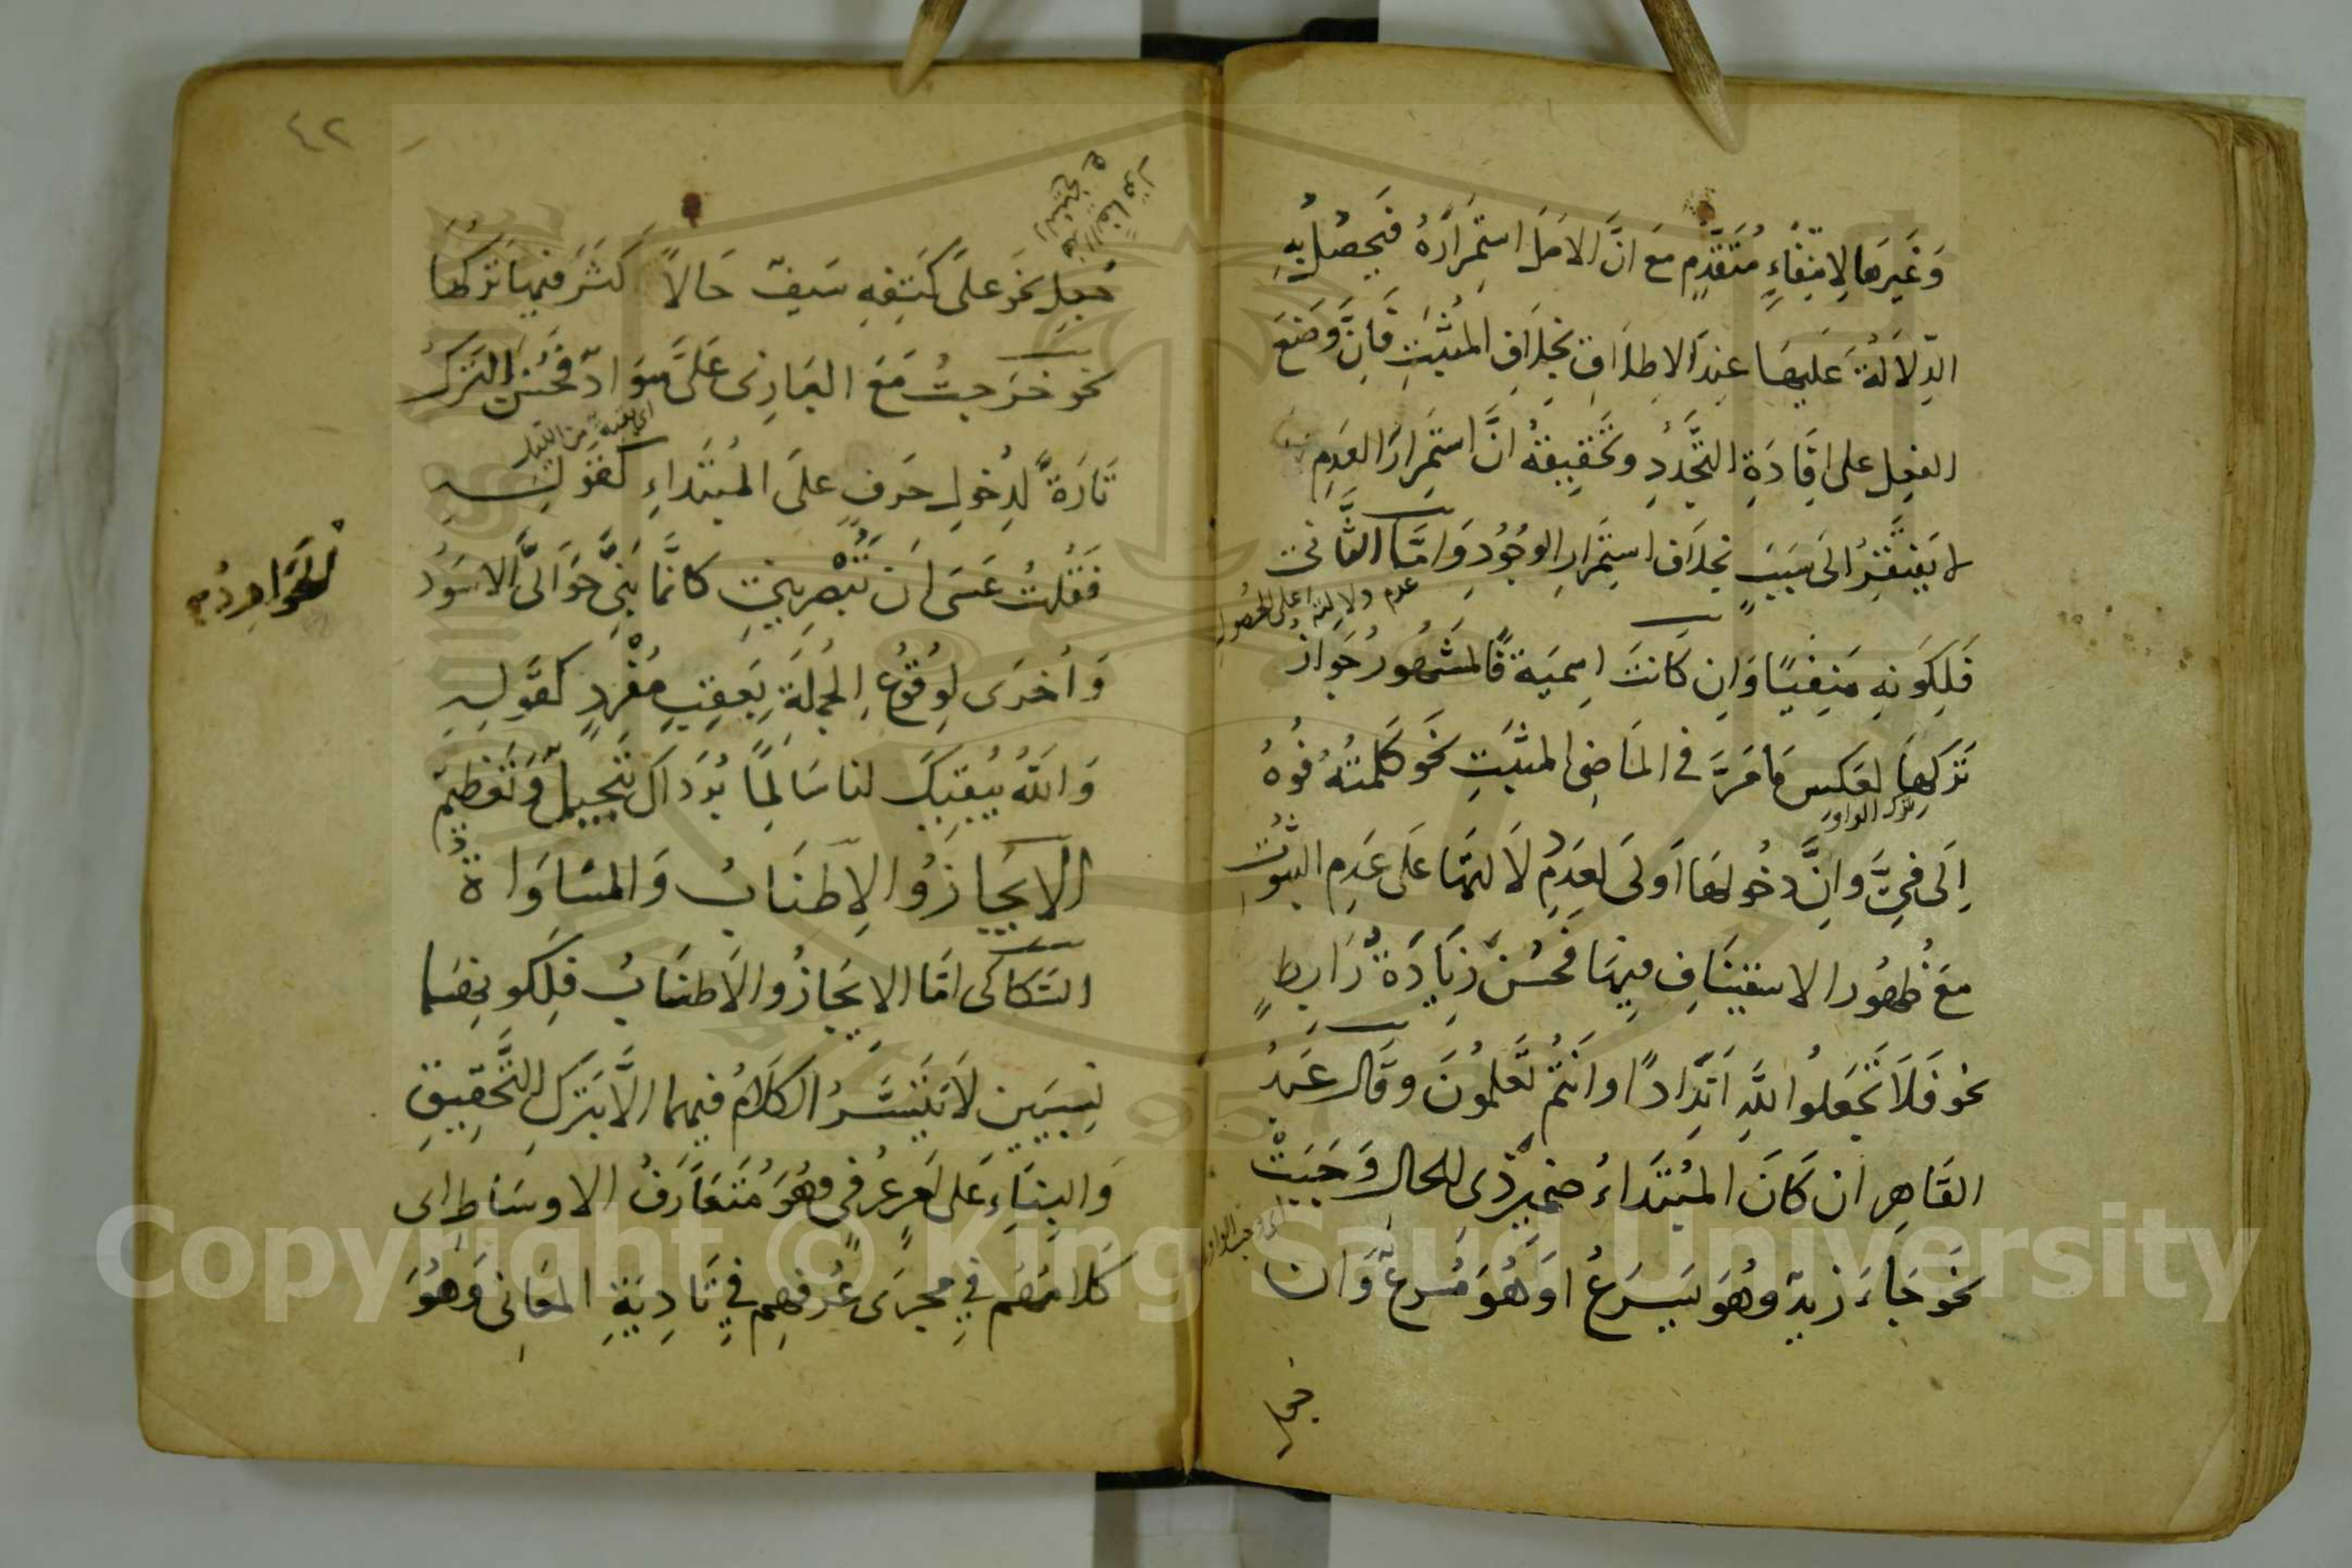 وَغَيرَهَا لِانتِفَاءٍ مُتَقَدِّمٍ مَعَ انَّ الاصَلَ استِمرَارُهُ فَيَحصُلُ بِهِ
الدِّلَالَةُ عَلَيهَا عِندَ الاِطلَاقِ بِخِلَافِ المُثبَتِ فَاِنَّ وَضعَ
الفِعلِ على اِفَادَةِ التَّجَدُّدِ وتَحقِيقَهُ انَّ استِمرَارَ العَدَمِ
لا يَفتَقِرُ الَى سَبَبٍ بِخِلَافِ استِمَرارِ الوجُودِ وَامَّا الثَّانى
عدم دلالته على الحصول
فَلِكَونِهِ مَنفِيًا وَاِن كَانَت اِسمِيَة فَالمَشهُورُ جَوَازُ
تَركِهَا لِعَكسِ مَا مَرَّ فى المَاضِى المثبَتِ نَحو كَلَّمتُهُ فُوهُ
بترك الواو
اِلَى فىَّ وانَّ دخُولهَا اَولَى لِعَدَمِ دلَالَتهَا عَلى عَدَمِ الثبُوتِ
مَعَ ظهُورِ الاستِينَافِ فِيهَا فَحَسُنَ زِيَادَةُ رَابِطٍ
نحو فَلَا تَجعَلوُا للَّهِ اَندَادًا وانتُم تَعلَمُونَ وقَال عَبدُ
القَاهِرِ ان كَانَ المُبتَداءُ ضَمِيرَ ذِى الحالِ وَجَبَتْ
اى وجب الواو
نَحَو جَاءَ زيدٌ وهُوَ يَسرَعُ اوَ هُوَ مُسرعٌ وَان
جعل
٤٢
جُعِلَ نَحَو عَلَى كَتِفِهِ سَيفٌ حَالاً كَثُرَ فيهَا تَركهَا
نحو خَرَجتُ مَعَ البَازِى عَلَىَّ سَوَادٌ فَحُسنُ التَركِ
اى بقية من الليل
تَارَةً لِدِخُولِ حَرفٍ عَلَى المُبتَدَاءِ كَقَولِهِ
فَقُلتُ عَسَى اَن تُبْصِرِينِى كَانَّمَا بَنِىَّ حَوَالَىَّ الاسَوُدُ
الحَوَارِدُ
وَاُخرَى لِوقُوعِ الجُملَةِ بِعَقِبِ مُفْرَدٍ كقَولِهِ
وَاللهُ يُبقِيكَ لنا سَالِمًا بُردَاكَ تَبجِيلٌ وَتَعظِيمٌ
الايجَازُ والاِطنَابُ وَالمسَاوَاةُ
السَّكَاكى امَّا الايجَازُ والاَطنَابُ فَلِكَونِهِمَا
نِسبِيَّينِ لَا يَتَيَسَّرُ الكَلَامُ فيهِما الَّا بتَركِ التَّحقِيقِ
وَالبِنَاءِ عَلى اَمرٍ عُرفِىٍّ وهُوَ مُتَعَارَفُ الاوسَاطِ اى
كلامُهُم فى مَجرَى عُرفِهِم فى تَادِيَةِ المعَانِى وَهُوَ